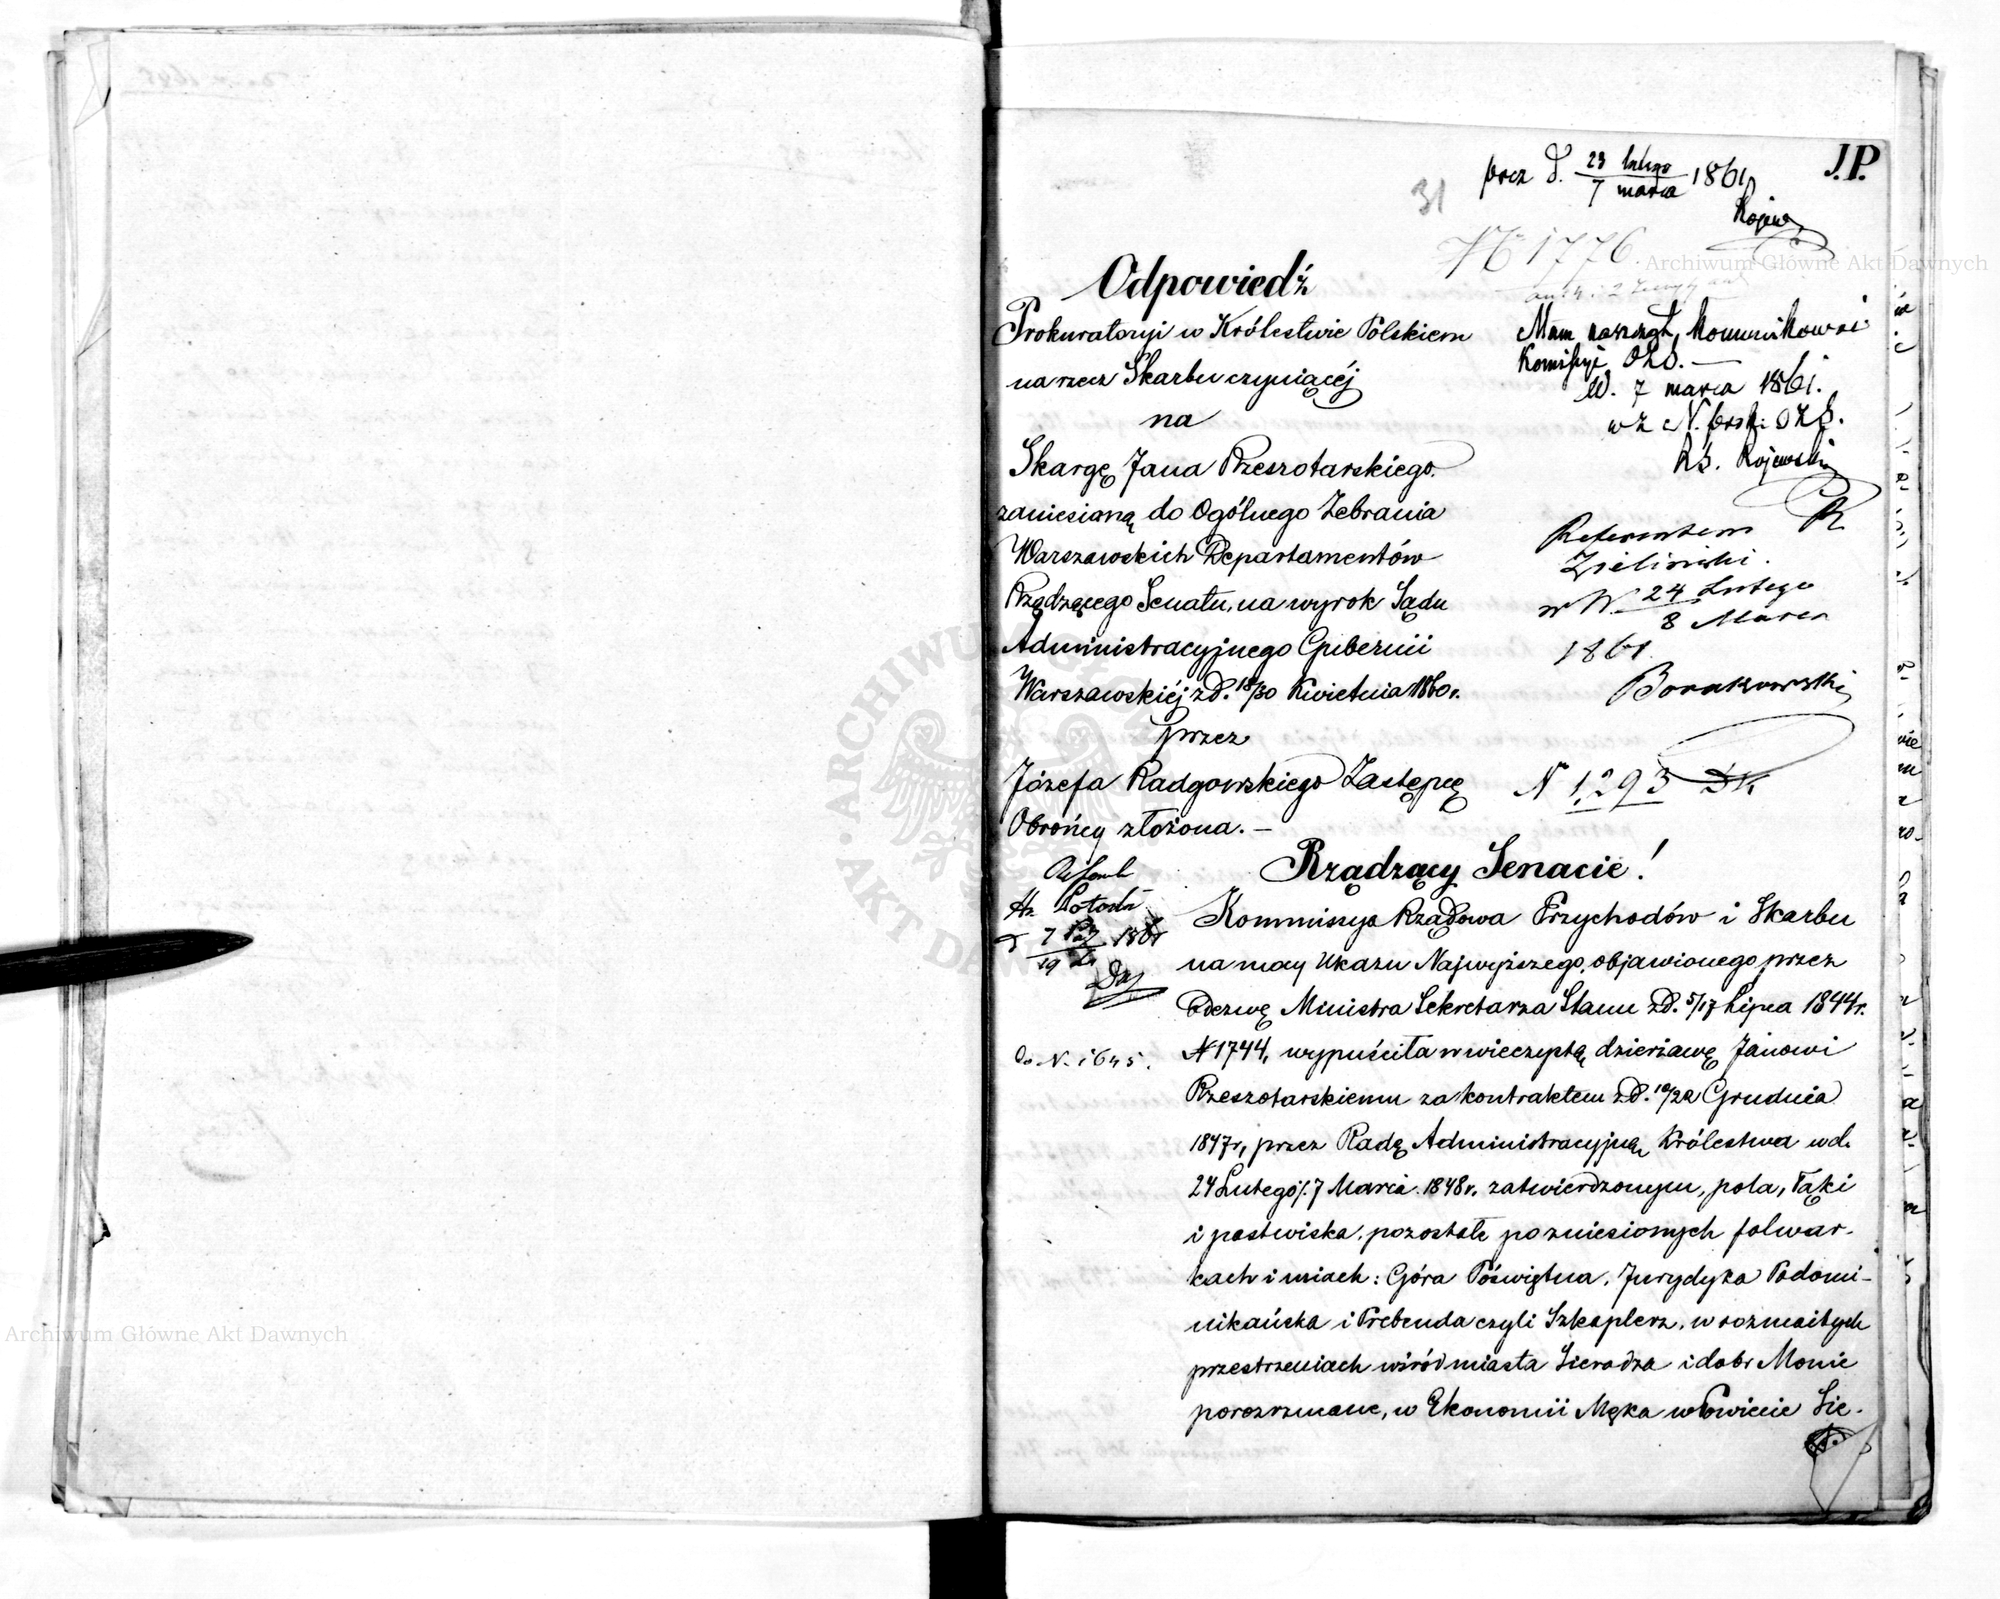 J.P.
prez d. 23 lutego / 7 marca 1861
31
№ 1776
Odpowiedź
Prokuratoryi w Królestwie Polskiem
na rzecz Skarbu czyniącéj
na
Skargę Jana Rzeszotarskiego
zaniesioną do Ogólnego Zebrania
Warszawskich Departamentów
Rządzącego Senatu, na wyrok Sądu
Administracyjnego Gubernii
Warszawskiéj z d. 18/30 Kwietnia 1860 r.
przez
Józefa Radgowskiego Zastępcę
Obrońcy złożona. —
Kommissyi O.Z.S. —
W. 7 marca 1861.
R.S. Rojewski
Referentem
Zieliński.
w W. 24 Lutego / 8 Marca
1861
N 1293
Do N. 1645.
Rządzący Senacie!
Kommissya Rządowa Przychodów i Skarbu
na mocy Ukazu Najwyższego, objawionego przez
Odezwę Ministra Sekretarza Stanu z d. 5/17 Lipca 1844 r.
N 1744, wypuściła w wieczystą dzierżawę Janowi
Rzeszotarskiemu za kontraktem z d. 10/22 Grudnia
1847 r, przez Radę Administracyjną Królestwa w d.
24 Lutego /. 7 Marca 1848 r. zatwierdzonym, pola, łąki
i pastwiska, pozostałe po zniesionych folwar-
kach i wsiach: Góra Poświętna, Jurydyka Podomi-
nikańska i Prebenda czyli Szkaplerz, w rozmaitych
przestrzeniach wśród miasta Sieradza i dóbr Monic
porozrzucane, w Ekonomii Męka w Powiecie Sie-
Archiwum Główne Akt Dawnych
Archiwum Główne Akt Dawnych